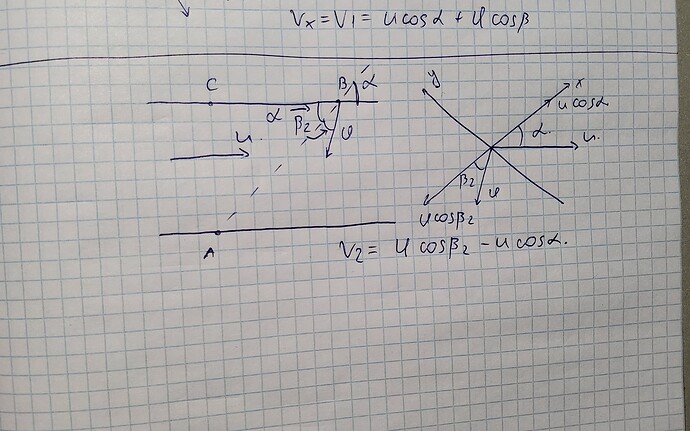 Vx = V1 = u cosα + υ cosβ
C
B
α
α
β2
υ
u.
A
y
x
u cosα
α.
u.
β2
υ
υ cosβ2
V2 = υ cosβ2 - u cosα.